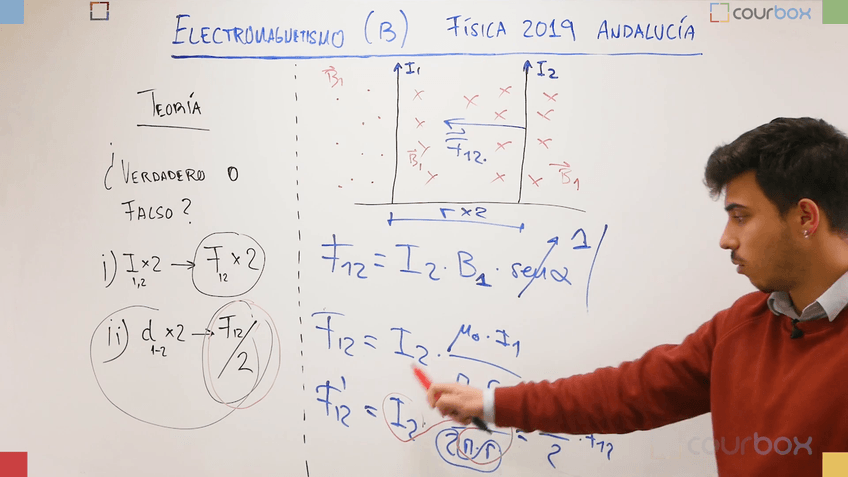 ELECTROMAGNETISMO (B) FÍSICA 2019 ANDALUCÍA
courbox
TEORÍA
¿VERDADERO O
FALSO?
i) I₁,₂ x2 → F₁₂ x2
ii) d₁₋₂ x2 → F₁₂/2
B₁ I₁ I₂
F₁₂
B₁ B₁
r x2
F₁₂ = I₂ · B₁ · senα 1
F₁₂ = I₂ · μ₀ · I₁
F'₁₂ = I₂
2 = 2 · F₁₂
courbox